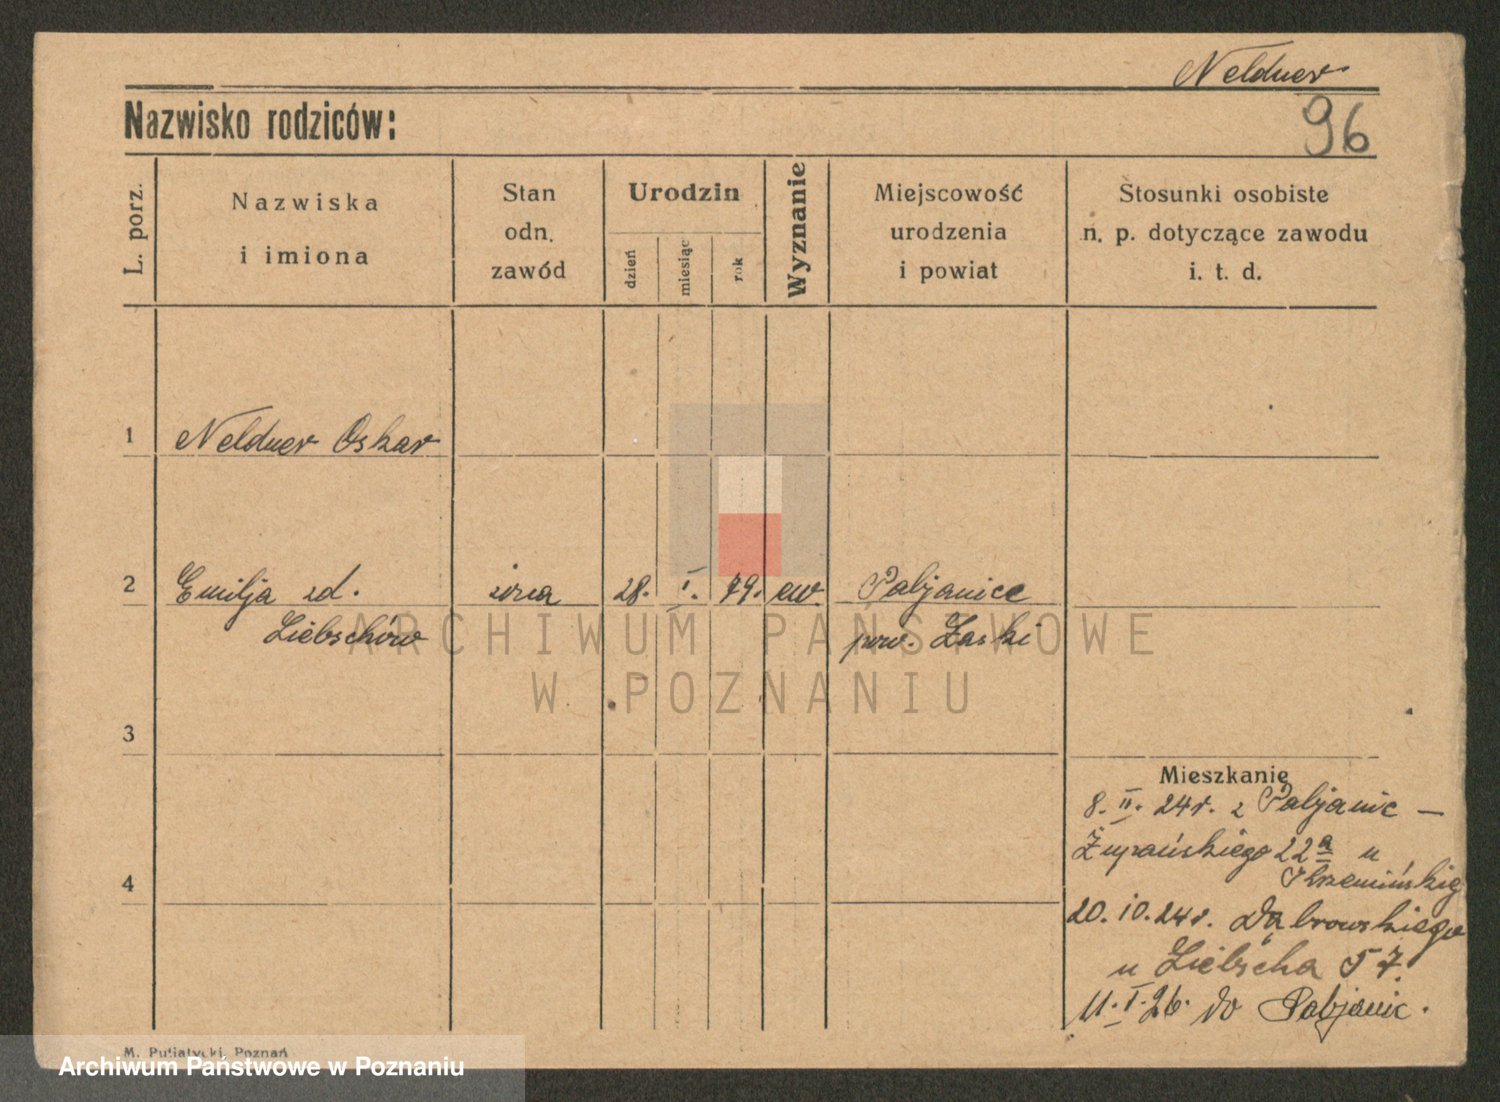 Neldner
96
Nazwisko rodziców:
L. porz.
Nazwiska
i imiona
Stan
odn.
zawód
Urodzin
dzień
miesiąc
rok
Wyznanie
Miejscowość
urodzenia
i powiat
Stosunki osobiste
n. p. dotyczące zawodu
i. t. d.
1 Neldner Oskar
2 Emilja zd. żona 28. I. 79. ew. Pabjanice
Liebschów pow. Łaski
ARCHIWUM PAŃSTWOWE
W POZNANIU
3
Mieszkanie
8. II. 24r. z Pabjanic —
Żupańskiego 22a u
4
20. 10. 24r. Dąbrowskiego
u Liebscha 57.
11. I. 26. do Pabjanic.
M. Putiatycki, Poznań
Archiwum Państwowe w Poznaniu